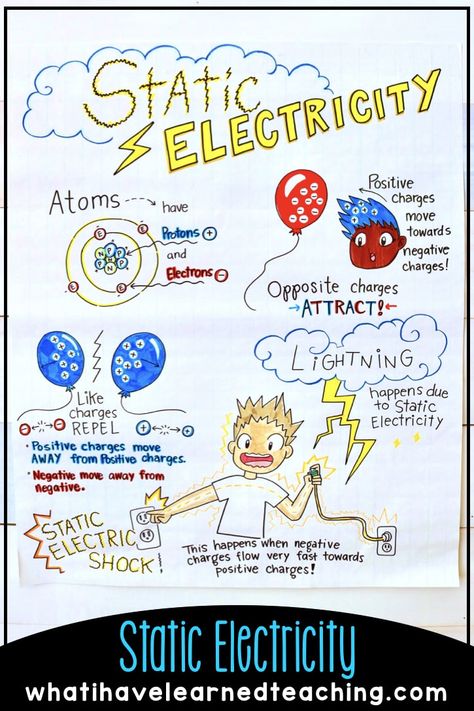 Static
ELECTRICITY
Atoms → have
Protons +
and
Electrons -
E
E
E
E
N P
P N P
N P
Positive
charges
move
towards
negative
charges!
Opposite charges
→ATTRACT!←
Like
charges
REPEL
• Positive charges move
AWAY from Positive charges.
• Negative move away from
negative.
LIGHTNING
happens due
to Static
Electricity
STATIC
ELECTRIC
SHOCK!
This happens when negative
charges flow very fast towards
positive charges!
Static Electricity
whatihavelearnedteaching.com